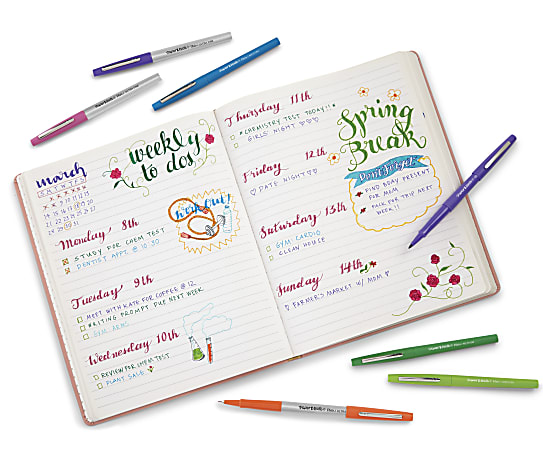 march
weekly
to dos
Monday 8th
STUDY FOR CHEM TEST
DENTIST APPT. @ 10:30
work out!
Tuesday 9th
MEET WITH KATE FOR COFFEE @ 12
WRITING PROMPT DUE NEXT WEEK
GYM ARMS
Wednesday 10th
REVIEW FOR CHEM TEST
PLANT SALE
Thursday 11th
*CHEMISTRY TEST TODAY!!*
GIRLS NIGHT
Friday 12th
DATE NIGHT
Saturday 13th
GYM CARDIO
CLEAN HOUSE
Sunday 14th
FARMER'S MARKET W/ MOM
Spring
Break
Don't forget
FIND BDAY PRESENT
FOR MOM
PACK FOR TRIP NEXT
WEEK!!